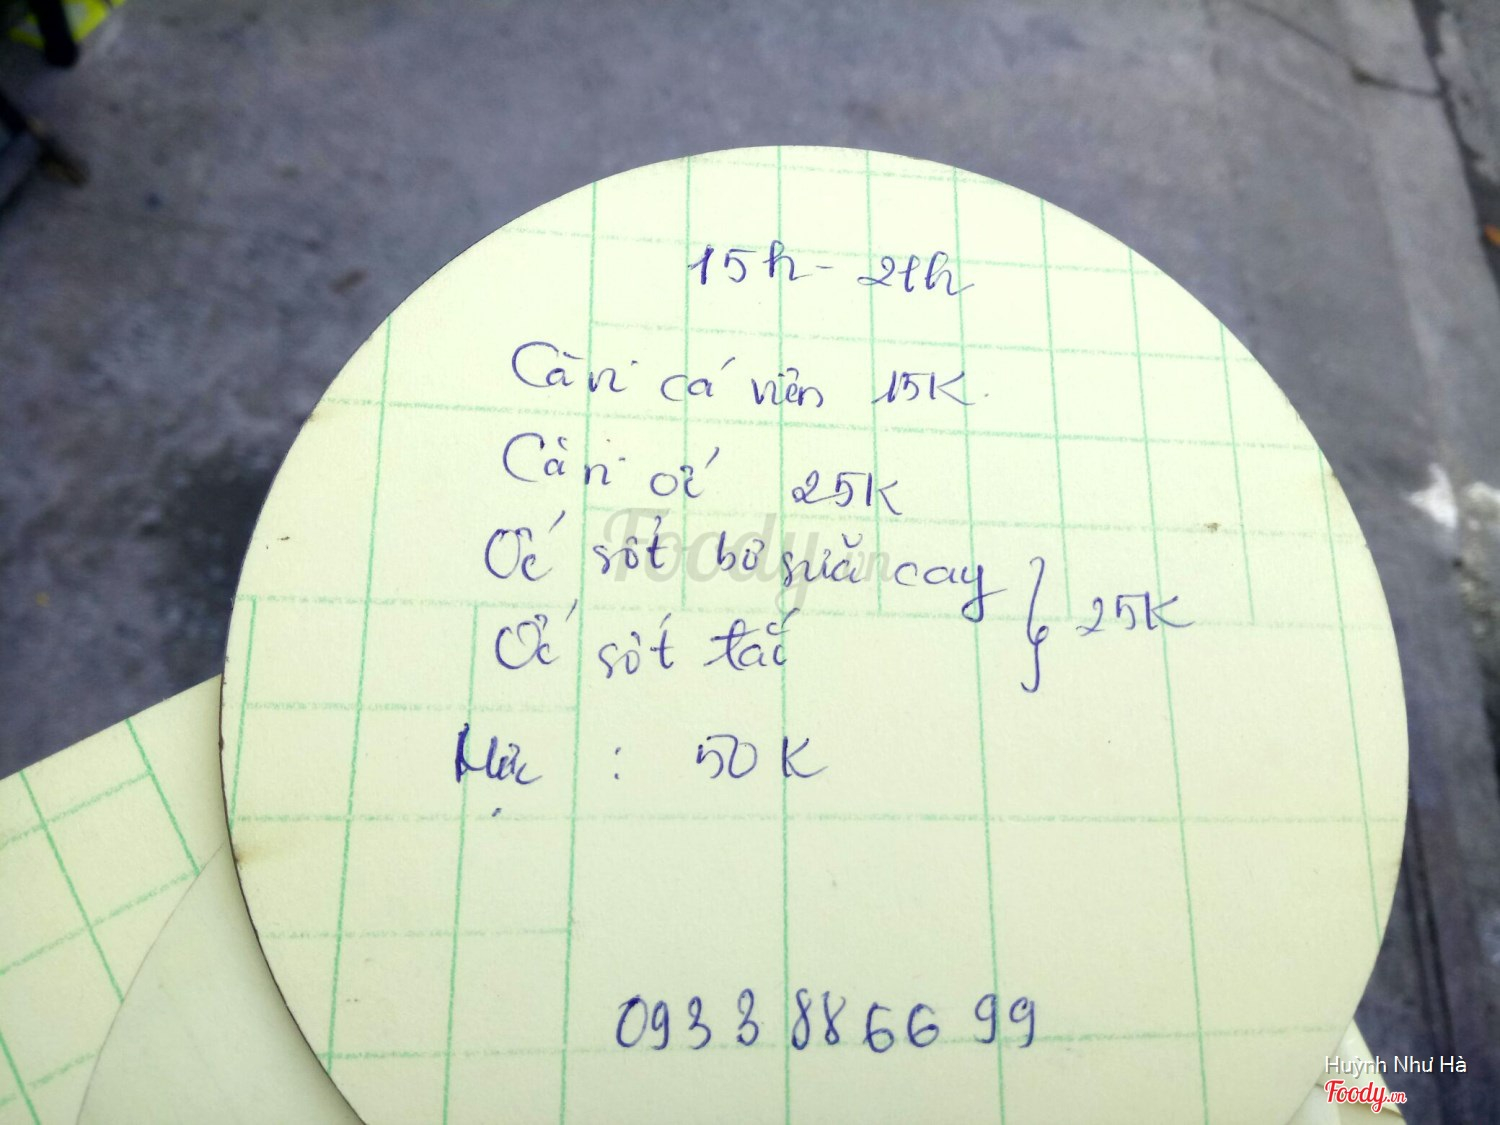 15h - 21h
Càri cá viên 15K
Càri ốc 25K
Ốc sốt bơ sữa cay
Ốc sốt tắc
} 25K
Mực : 50K
0933 88 66 99
Foody.vn
Huỳnh Như Hà
Foody.vn